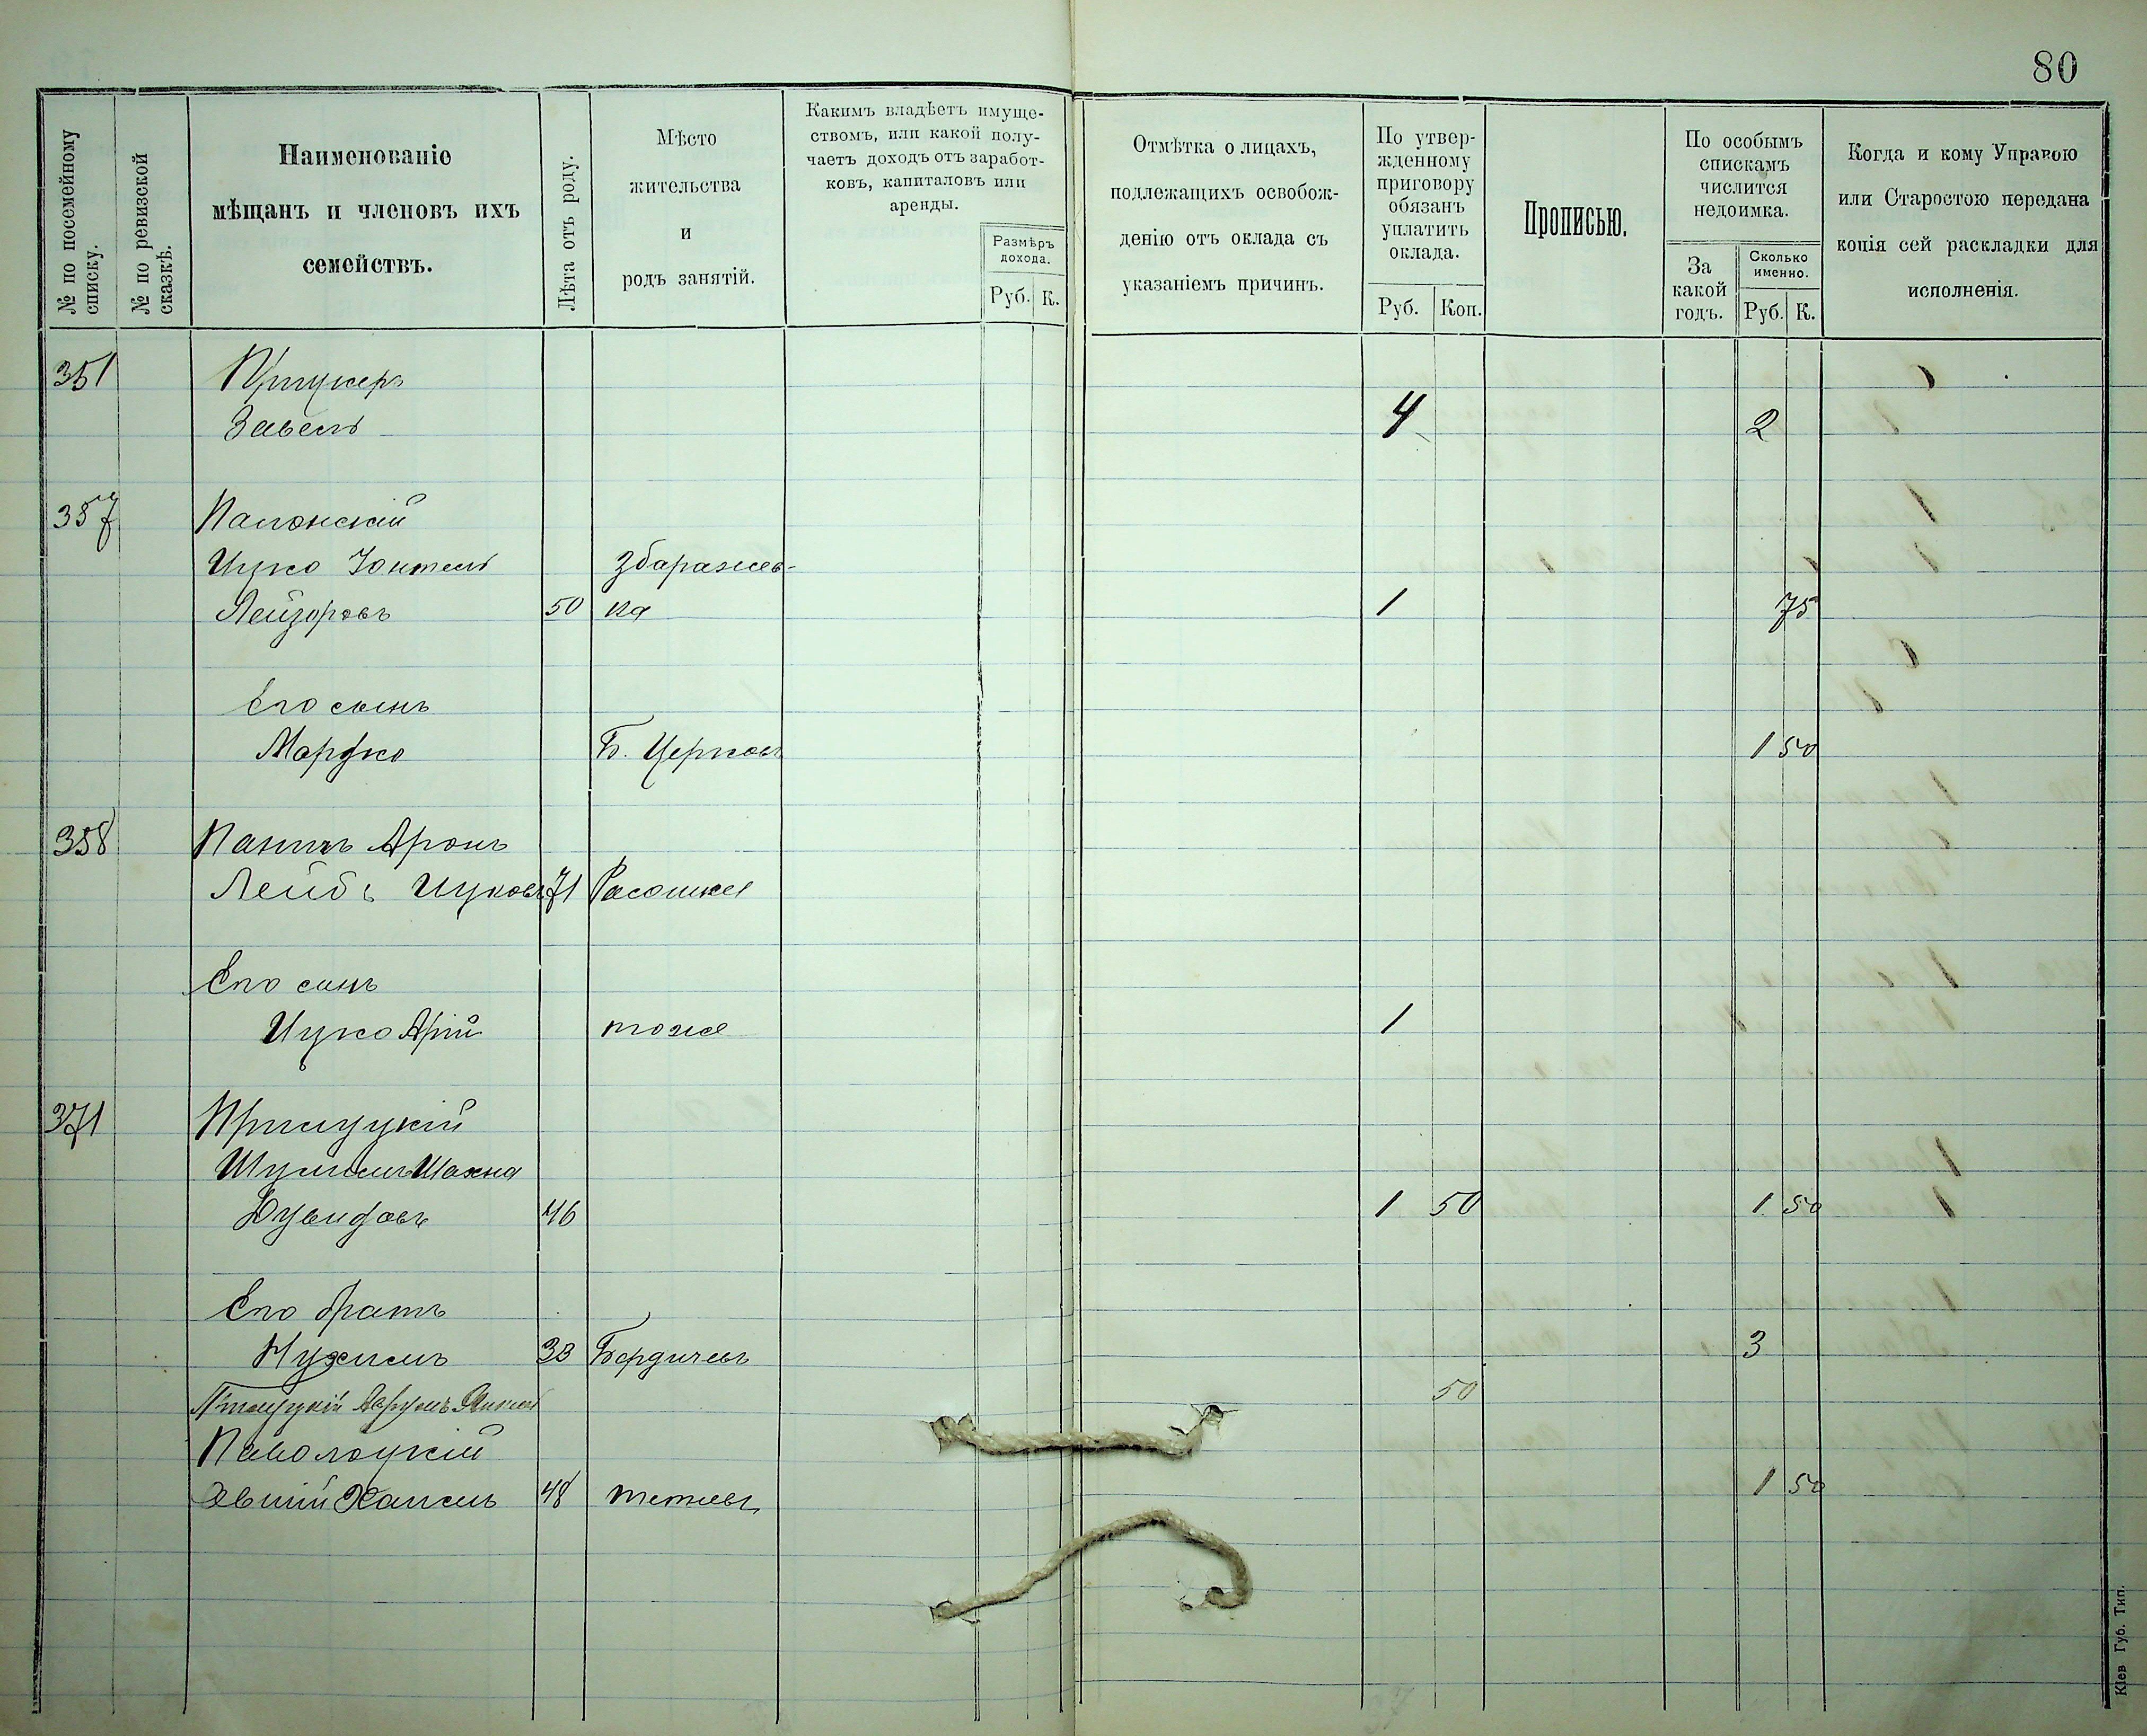 80
№ по посемейному списку.
№ по ревизской сказкѣ.
Наименованіе
мѣщанъ и членовъ ихъ
семействъ.
Лѣта отъ роду.
Мѣсто
жительства
и
родъ занятій.
Какимъ владѣетъ имуще-
ствомъ, или какой полу-
чаетъ доходъ отъ заработ-
ковъ, капиталовъ или
аренды.
Размѣръ
дохода.
Руб. К.
Отмѣтка о лицахъ,
подлежащихъ освобож-
денію отъ оклада съ
указаніемъ причинъ.
По утвер-
жденному
приговору
обязанъ
уплатить
оклада.
Руб. Коп.
Прописью.
По особымъ
спискамъ
числится
недоимка.
За
какой
годъ.
Сколько
именно.
Руб. К.
Когда и кому Управою
или Старостою передана
копія сей раскладки для
исполненія.
351
Завель 4 2
357
Ицко Юнтель Збаражев-
Лейзоровъ 50 ка 1 75
Его сынъ
Мордко Б. Церковь 1 50
358 Аронъ
Лейбъ Ицковъ 71 Расошки
Его сынъ
Ицко Арій тоже 1
371 Прилуцкій
Шулимъ Шахна
Дувидовъ 46 1 50 1 50
Его братъ
Нухимъ 33 Бердичевъ 3
50
Паволоцкій
48 Тетіевъ 1 50
Кіев Губ. Тип.